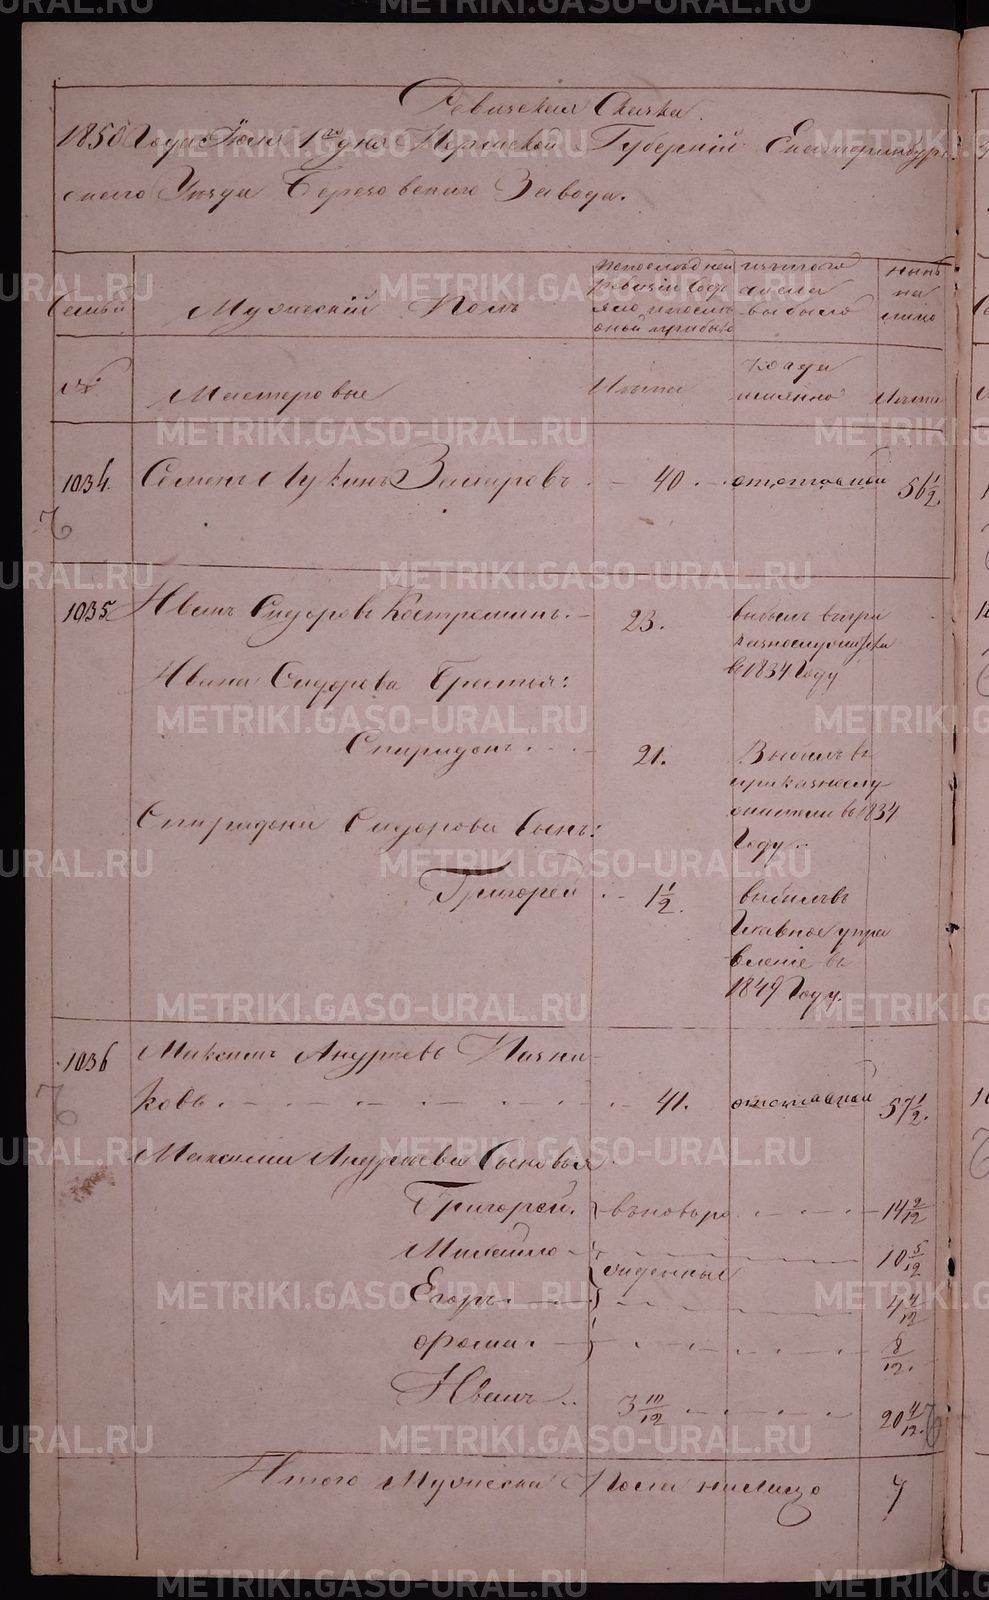 Ревизская Сказка.
1850 Года Июня 1го дня Пермской Губернии Екатеринбург
скаго Уезда Березовскаго Завода.
Семьи
Мужеский Полъ
По последней ревизии состояло и после оной прибыло
изъ того числа выбыло
ныне на лицо
№
Мастеровые
Лета
когда именно
Лета
1034. Семенъ Лукинъ 40. отставной 56 1/2
1035 Иванъ Сидоровъ Костромин. 23. выбылъ
в 1834 Году
Ивана Сидорова Братья:
Спиридонъ 21. Выбылъ въ
въ 1834
Году
Спиридона Сидорова Сынъ:
Григорей 1 1/2. выбылъ въ
Главное упра
вление въ
1849 Году.
1036 Максимъ Андреевъ Пачни
ковъ 41. отставной 57 1/2.
Максима Андреева Сыновья
Григорей. вновь 14 2/12
Михайло 10 5/12
рожденные
Егоръ. 4 4/12
Фома. 8/12.
Иванъ 3 10/12 20 4/12.
Итого Мужеска Пола на лицо 7
METRIKI.GASO-URAL.RU